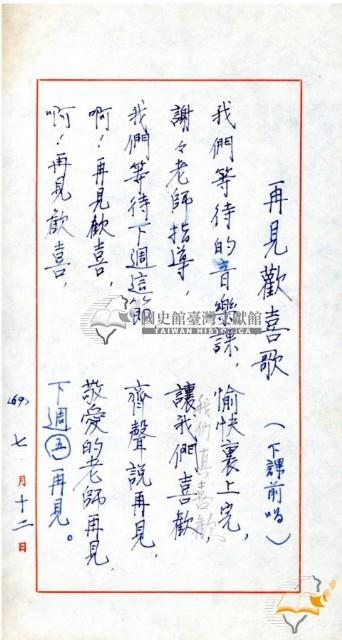 再見歡喜歌 (下課前唱)
我們等待的音樂課，愉快裏上完，
謝々老師指導，讓我們喜歡
我們真喜歡
我們等待下週這節 齊聲說再見，
啊！再見歡喜，敬愛的老師再見，
啊！再見歡喜，下週五再見。
<69> 七月十二日
國史館臺灣文獻館
TAIWAN HISTORICA